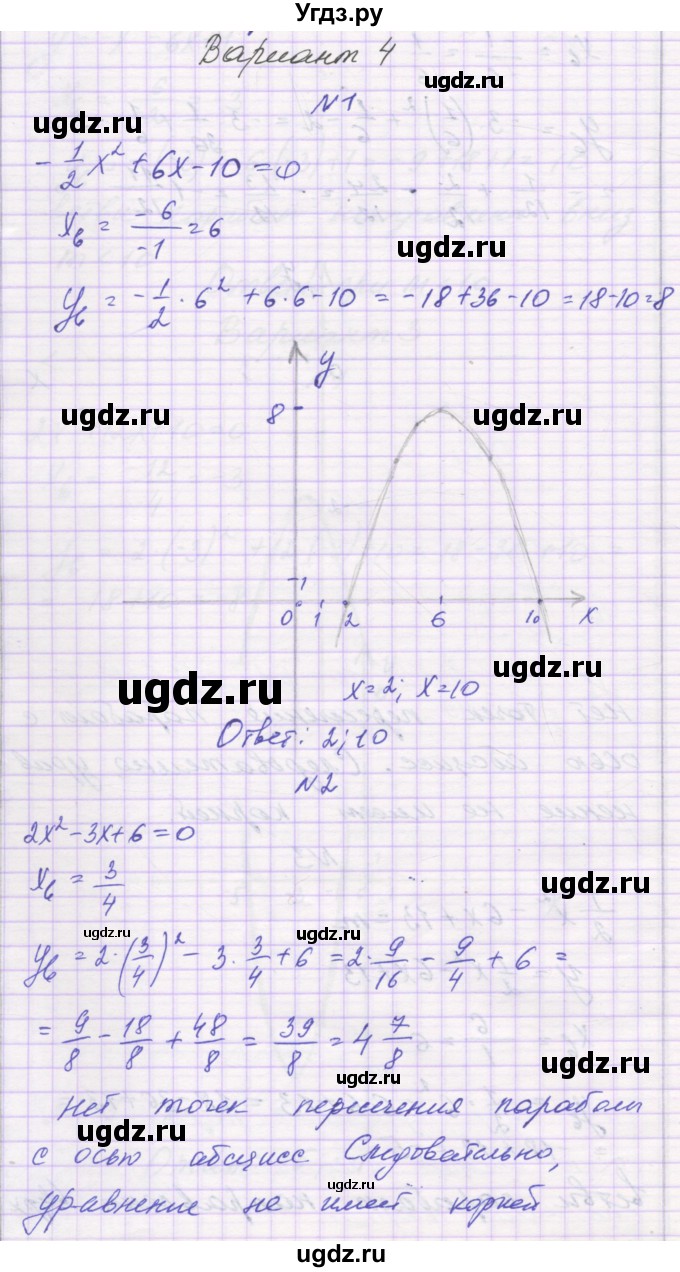 Угдз.ру
Вариант 4
ugdz.ru
N1
ugdz.ru
-1/2 x² + 6x - 10 = 0
xв = -6/-1 = 6
ugdz.ru
yв = -1/2 · 6² + 6·6 - 10 = -18 + 36 - 10 = 18 - 10 = 8
y
8
ugdz.ru
ugdz.ru
1
0 1 2 6 10 x
ugdz.ru
ugdz.ru
x=2; x=10
Ответ: 2; 10
N2
ugdz.ru
2x² - 3x + 6 = 0
xв = 3/4
ugdz.ru
ugdz.ru
ugdz.ru
yв = 2·(3/4)² - 3·3/4 + 6 = 2·9/16 - 9/4 + 6 =
= 9/8 - 18/8 + 48/8 = 39/8 = 4 7/8
ugdz.ru
ugdz.ru
Нет точек пересечения параболы
ugdz.ru
с осью абсцисс Следовательно,
ugdz.ru
уравнение не имеет корней
ugdz.ru